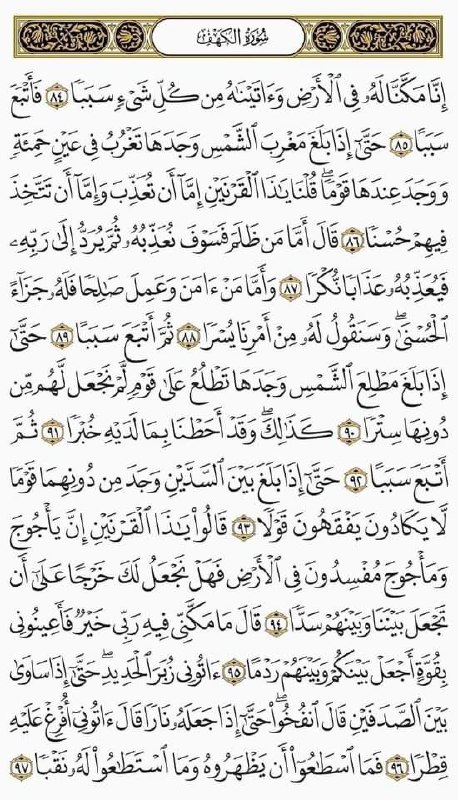 سُورَةُ الكَهْفِ
إِنَّا مَكَّنَّا لَهُۥ فِي ٱلْأَرْضِ وَءَاتَيْنَٰهُ مِن كُلِّ شَيْءٍ سَبَبًا ٨٤ فَأَتْبَعَ
سَبَبًا ٨٥ حَتَّىٰٓ إِذَا بَلَغَ مَغْرِبَ ٱلشَّمْسِ وَجَدَهَا تَغْرُبُ فِي عَيْنٍ حَمِئَةٖ
وَوَجَدَ عِندَهَا قَوْمٗاۖ قُلْنَا يَٰذَا ٱلْقَرْنَيْنِ إِمَّآ أَن تُعَذِّبَ وَإِمَّآ أَن تَتَّخِذَ
فِيهِمْ حُسْنٗا ٨٦ قَالَ أَمَّا مَن ظَلَمَ فَسَوْفَ نُعَذِّبُهُۥ ثُمَّ يُرَدُّ إِلَىٰ رَبِّهِۦ
فَيُعَذِّبُهُۥ عَذَابٗا نُّكْرٗا ٨٧ وَأَمَّا مَنْ ءَامَنَ وَعَمِلَ صَٰلِحٗا فَلَهُۥ جَزَآءً
ٱلْحُسْنَىٰۖ وَسَنَقُولُ لَهُۥ مِنْ أَمْرِنَا يُسْرٗا ٨٨ ثُمَّ أَتْبَعَ سَبَبًا ٨٩ حَتَّىٰٓ
إِذَا بَلَغَ مَطْلِعَ ٱلشَّمْسِ وَجَدَهَا تَطْلُعُ عَلَىٰ قَوْمٖ لَّمْ نَجْعَل لَّهُم مِّن
دُونِهَا سِتْرٗا ٩٠ كَذَٰلِكَۖ وَقَدْ أَحَطْنَا بِمَا لَدَيْهِ خُبْرٗا ٩١ ثُمَّ
أَتْبَعَ سَبَبًا ٩٢ حَتَّىٰٓ إِذَا بَلَغَ بَيْنَ ٱلسَّدَّيْنِ وَجَدَ مِن دُونِهِمَا قَوْمٗا
لَّا يَكَادُونَ يَفْقَهُونَ قَوْلٗا ٩٣ قَالُوا۟ يَٰذَا ٱلْقَرْنَيْنِ إِنَّ يَأْجُوجَ
وَمَأْجُوجَ مُفْسِدُونَ فِي ٱلْأَرْضِ فَهَلْ نَجْعَلُ لَكَ خَرْجًا عَلَىٰٓ أَن
تَجْعَلَ بَيْنَنَا وَبَيْنَهُمْ سَدّٗا ٩٤ قَالَ مَا مَكَّنِّي فِيهِ رَبِّي خَيْرٞ فَأَعِينُونِي
بِقُوَّةٍ أَجْعَلْ بَيْنَكُمْ وَبَيْنَهُمْ رَدْمًا ٩٥ ءَاتُونِي زُبَرَ ٱلْحَدِيدِۖ حَتَّىٰٓ إِذَا سَاوَىٰ
بَيْنَ ٱلصَّدَفَيْنِ قَالَ ٱنفُخُوا۟ۖ حَتَّىٰٓ إِذَا جَعَلَهُۥ نَارٗا قَالَ ءَاتُونِيٓ أُفْرِغْ عَلَيْهِ
قِطْرٗا ٩٦ فَمَا ٱسْطَٰعُوٓا۟ أَن يَظْهَرُوهُ وَمَا ٱسْتَطَٰعُوا۟ لَهُۥ نَقْبٗا ٩٧